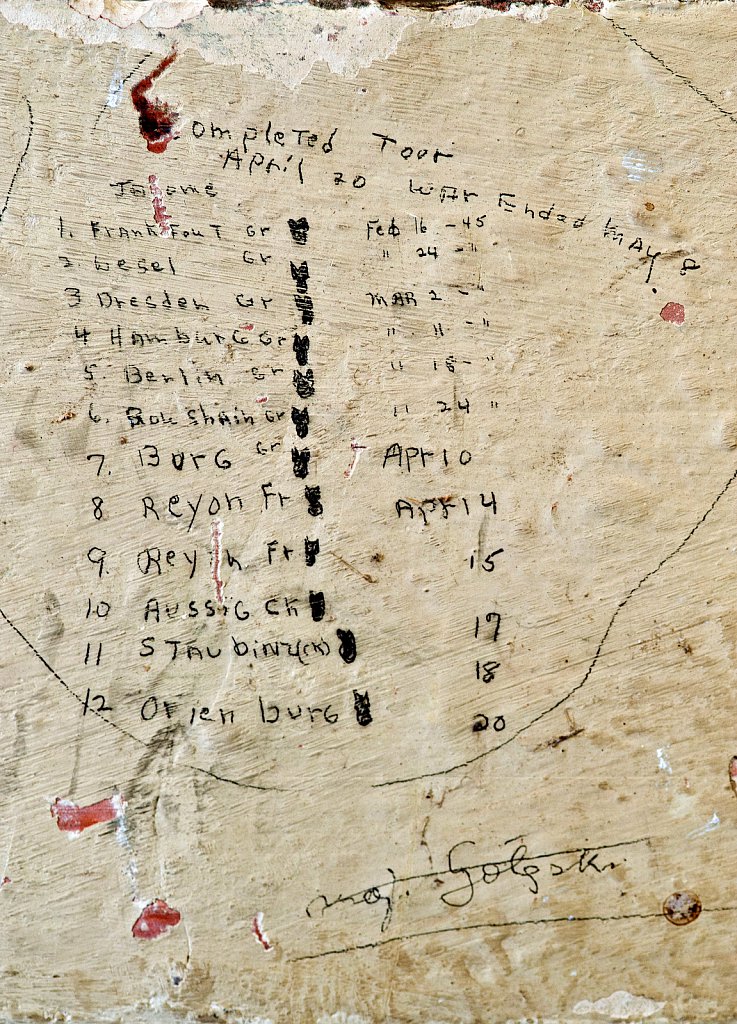 Completed Tour
April 20 War Ended May 8
1. Frankfout Gr Feb 16 - 45
2. Wesel Gr " 24 - "
3 Dresden Gr Mar 2 - "
4 Hamburg Gr " 11 - "
5. Berlin Gr " 18 - "
6. Gr " 24 "
7. Burg Gr Apr 10
8 Reyon Fr Apr 14
9. Fr 15
10 Aussig CK 17
11 Staubinz (CK) 18
12 Orien burg 20
Maj.